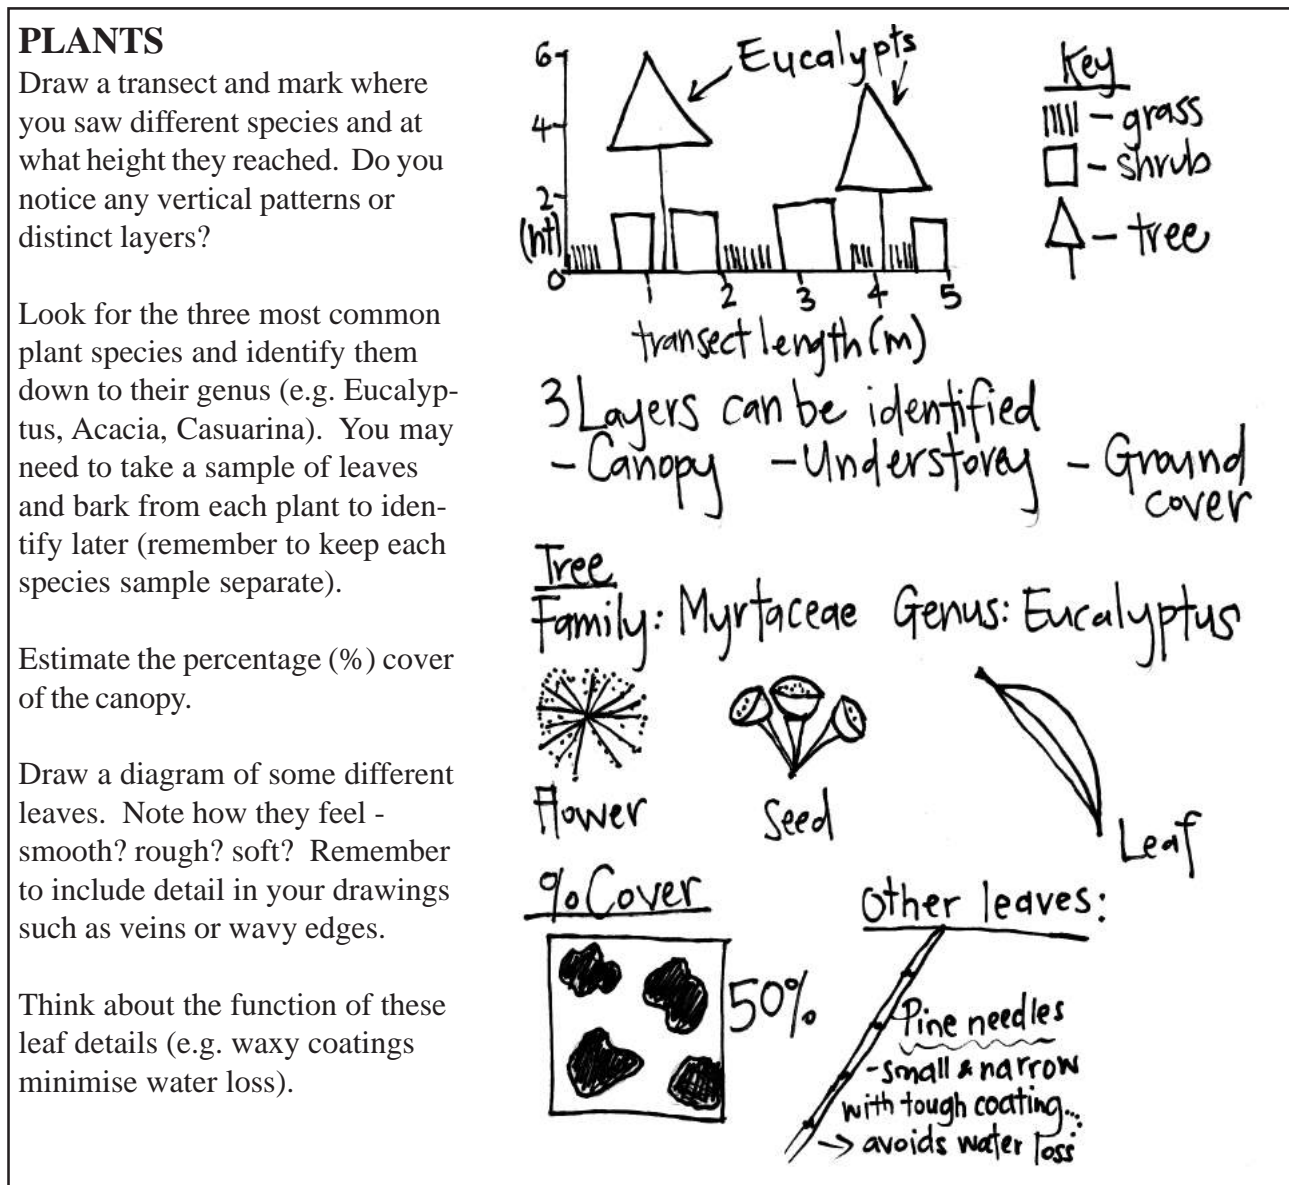 PLANTS
Draw a transect and mark where
you saw different species and at
what height they reached.  Do you
notice any vertical patterns or
distinct layers?
Look for the three most common
plant species and identify them
down to their genus (e.g. Eucalyp-
tus, Acacia, Casuarina).  You may
need to take a sample of leaves
and bark from each plant to iden-
tify later (remember to keep each
species sample separate).
Estimate the percentage (%) cover
of the canopy.
Draw a diagram of some different
leaves.  Note how they feel -
smooth? rough? soft?  Remember
to include detail in your drawings
such as veins or wavy edges.
Think about the function of these
leaf details (e.g. waxy coatings
minimise water loss).
Eucalypts
6
4
2
(ht)
0
1 2 3 4 5
transect length (m)
Key
- grass
- shrub
- tree
3 Layers can be identified
- Canopy - Understorey - Ground
cover
Tree
Family: Myrtaceae Genus: Eucalyptus
Flower
Seed
Leaf
% Cover
50%
Other leaves:
Pine needles
- small & narrow
with tough coating...
→ avoids water loss